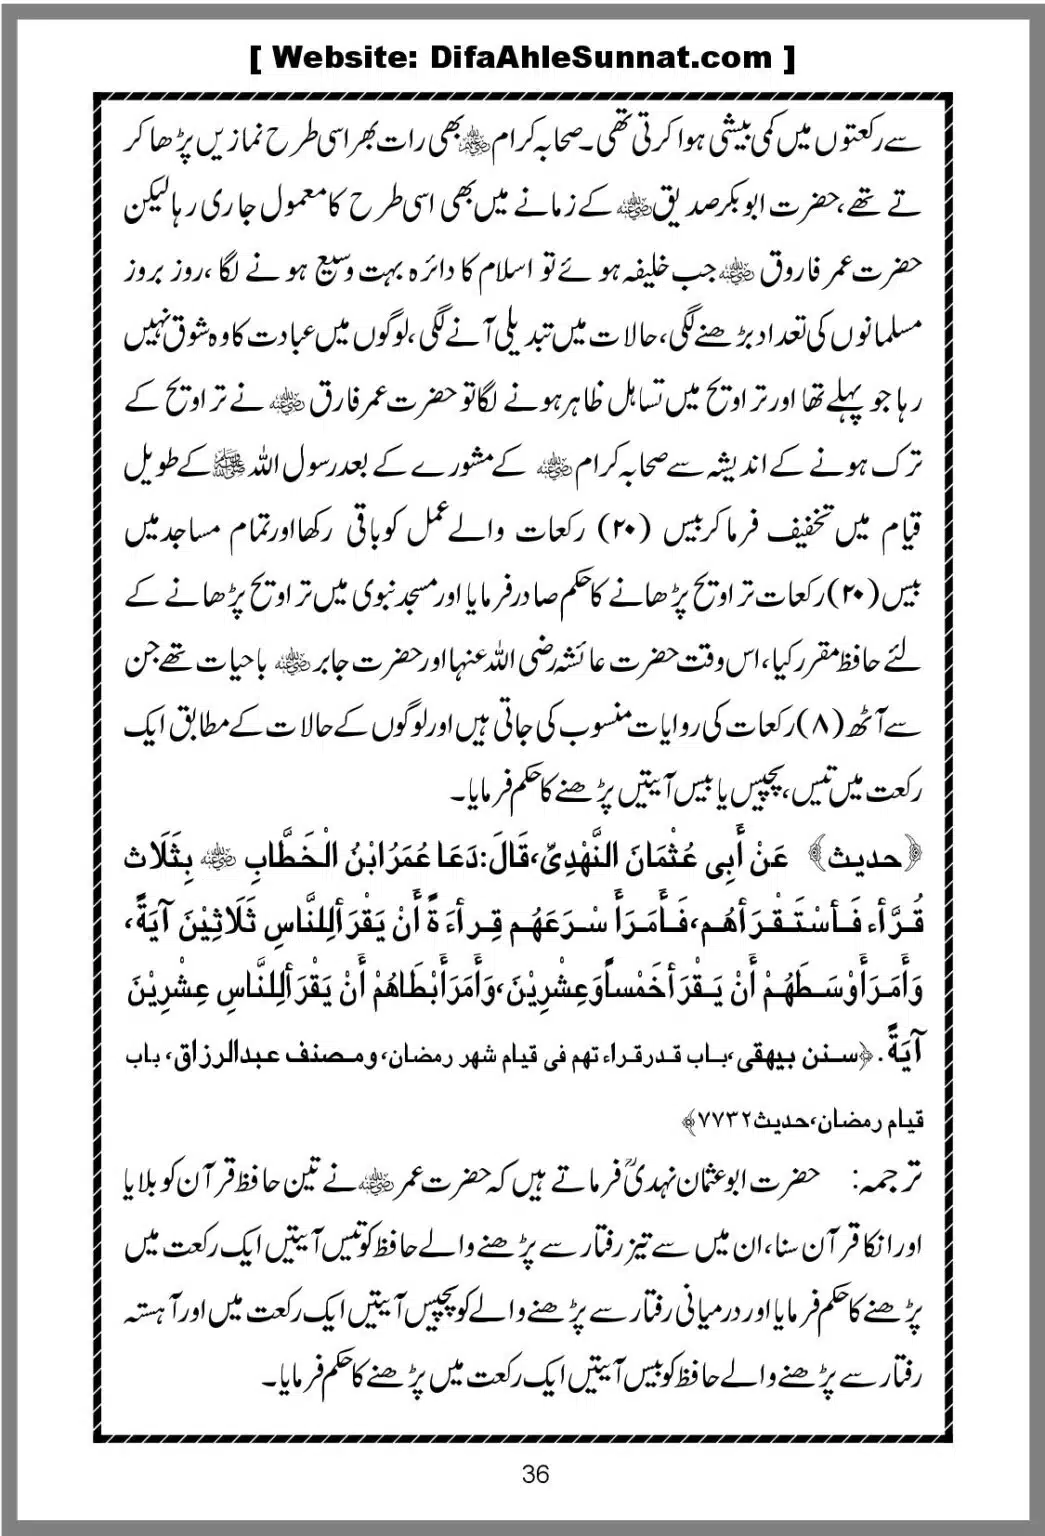 [ Website: DifaAhleSunnat.com ]
سے رکعتوں میں کمی بیشی ہوا کرتی تھی۔ صحابہ کرام ﷺ بھی رات بھر اسی طرح نمازیں پڑھا کر
تے تھے، حضرت ابو بکر صدیق رضی اللہ عنہ کے زمانے میں بھی اسی طرح کا معمول جاری رہا لیکن
حضرت عمر فاروق رضی اللہ عنہ جب خلیفہ ہوئے تو اسلام کا دائرہ بہت وسیع ہونے لگا، روز بروز
مسلمانوں کی تعداد بڑھنے لگی، حالات میں تبدیلی آنے لگی، لوگوں میں عبادت کا وہ شوق نہیں
رہا جو پہلے تھا اور تراویح میں تساہل ظاہر ہونے لگا تو حضرت عمر فارق رضی اللہ عنہ نے تراویح کے
ترک ہونے کے اندیشہ سے صحابہ کرام رضی اللہ عنہ کے مشورے کے بعد رسول اللہ ﷺ کے طویل
قیام میں تخفیف فرما کر بیس (۲۰) رکعات والے عمل کو باقی رکھا اور تمام مساجد میں
بیس (۲۰) رکعات تراویح پڑھانے کا حکم صادر فرمایا اور مسجد نبوی میں تراویح پڑھانے کے
لئے حافظ مقرر کیا، اس وقت حضرت عائشہ رضی اللہ عنہا اور حضرت جابر رضی اللہ عنہ باحیات تھے جن
سے آٹھ (۸) رکعات کی روایات منسوب کی جاتی ہیں اور لوگوں کے حالات کے مطابق ایک
رکعت میں تیس، پچیس یا بیس آیتیں پڑھنے کا حکم فرمایا۔
﴿حدیث﴾ عَنْ أَبِی عُثْمَانَ النَّهْدِیِّ، قَالَ: دَعَا عُمَرُ ابْنُ الْخَطَّابِ رضی اللہ عنہ بِثَلَاث
قُرَّاء فَاسْتَقْرَأهُم، فَأَمَرَ أَسْرَعَهُم قِراءَةً أَنْ يَقْرَأ لِلنَّاسِ ثَلَاثِيْنَ آيَةً،
وَأَمَرَ أَوْسَطَهُمْ أَنْ يَقْرَأ خَمْساً وَعِشْرِيْنَ، وَأَمَرَ أَبْطَاهُمْ أَنْ يَقْرَأ لِلنَّاسِ عِشْرِيْنَ
آيَةً. ﴿سنن بیھقی، باب قدر قراء تھم فی قیام شھر رمضان، ومصنف عبدالرزاق، باب
قیام رمضان، حدیث ۷۷۳۲﴾
ترجمہ: حضرت ابو عثمان نہدیؒ فرماتے ہیں کہ حضرت عمر رضی اللہ عنہ نے تین حافظ قرآن کو بلایا
اور انکا قرآن سنا، ان میں سے تیز رفتار سے پڑھنے والے حافظ کو تیس آیتیں ایک رکعت میں
پڑھنے کا حکم فرمایا اور درمیانی رفتار سے پڑھنے والے کو پچیس آیتیں ایک رکعت میں اور آہستہ
رفتار سے پڑھنے والے حافظ کو بیس آیتیں ایک رکعت میں پڑھنے کا حکم فرمایا۔
36